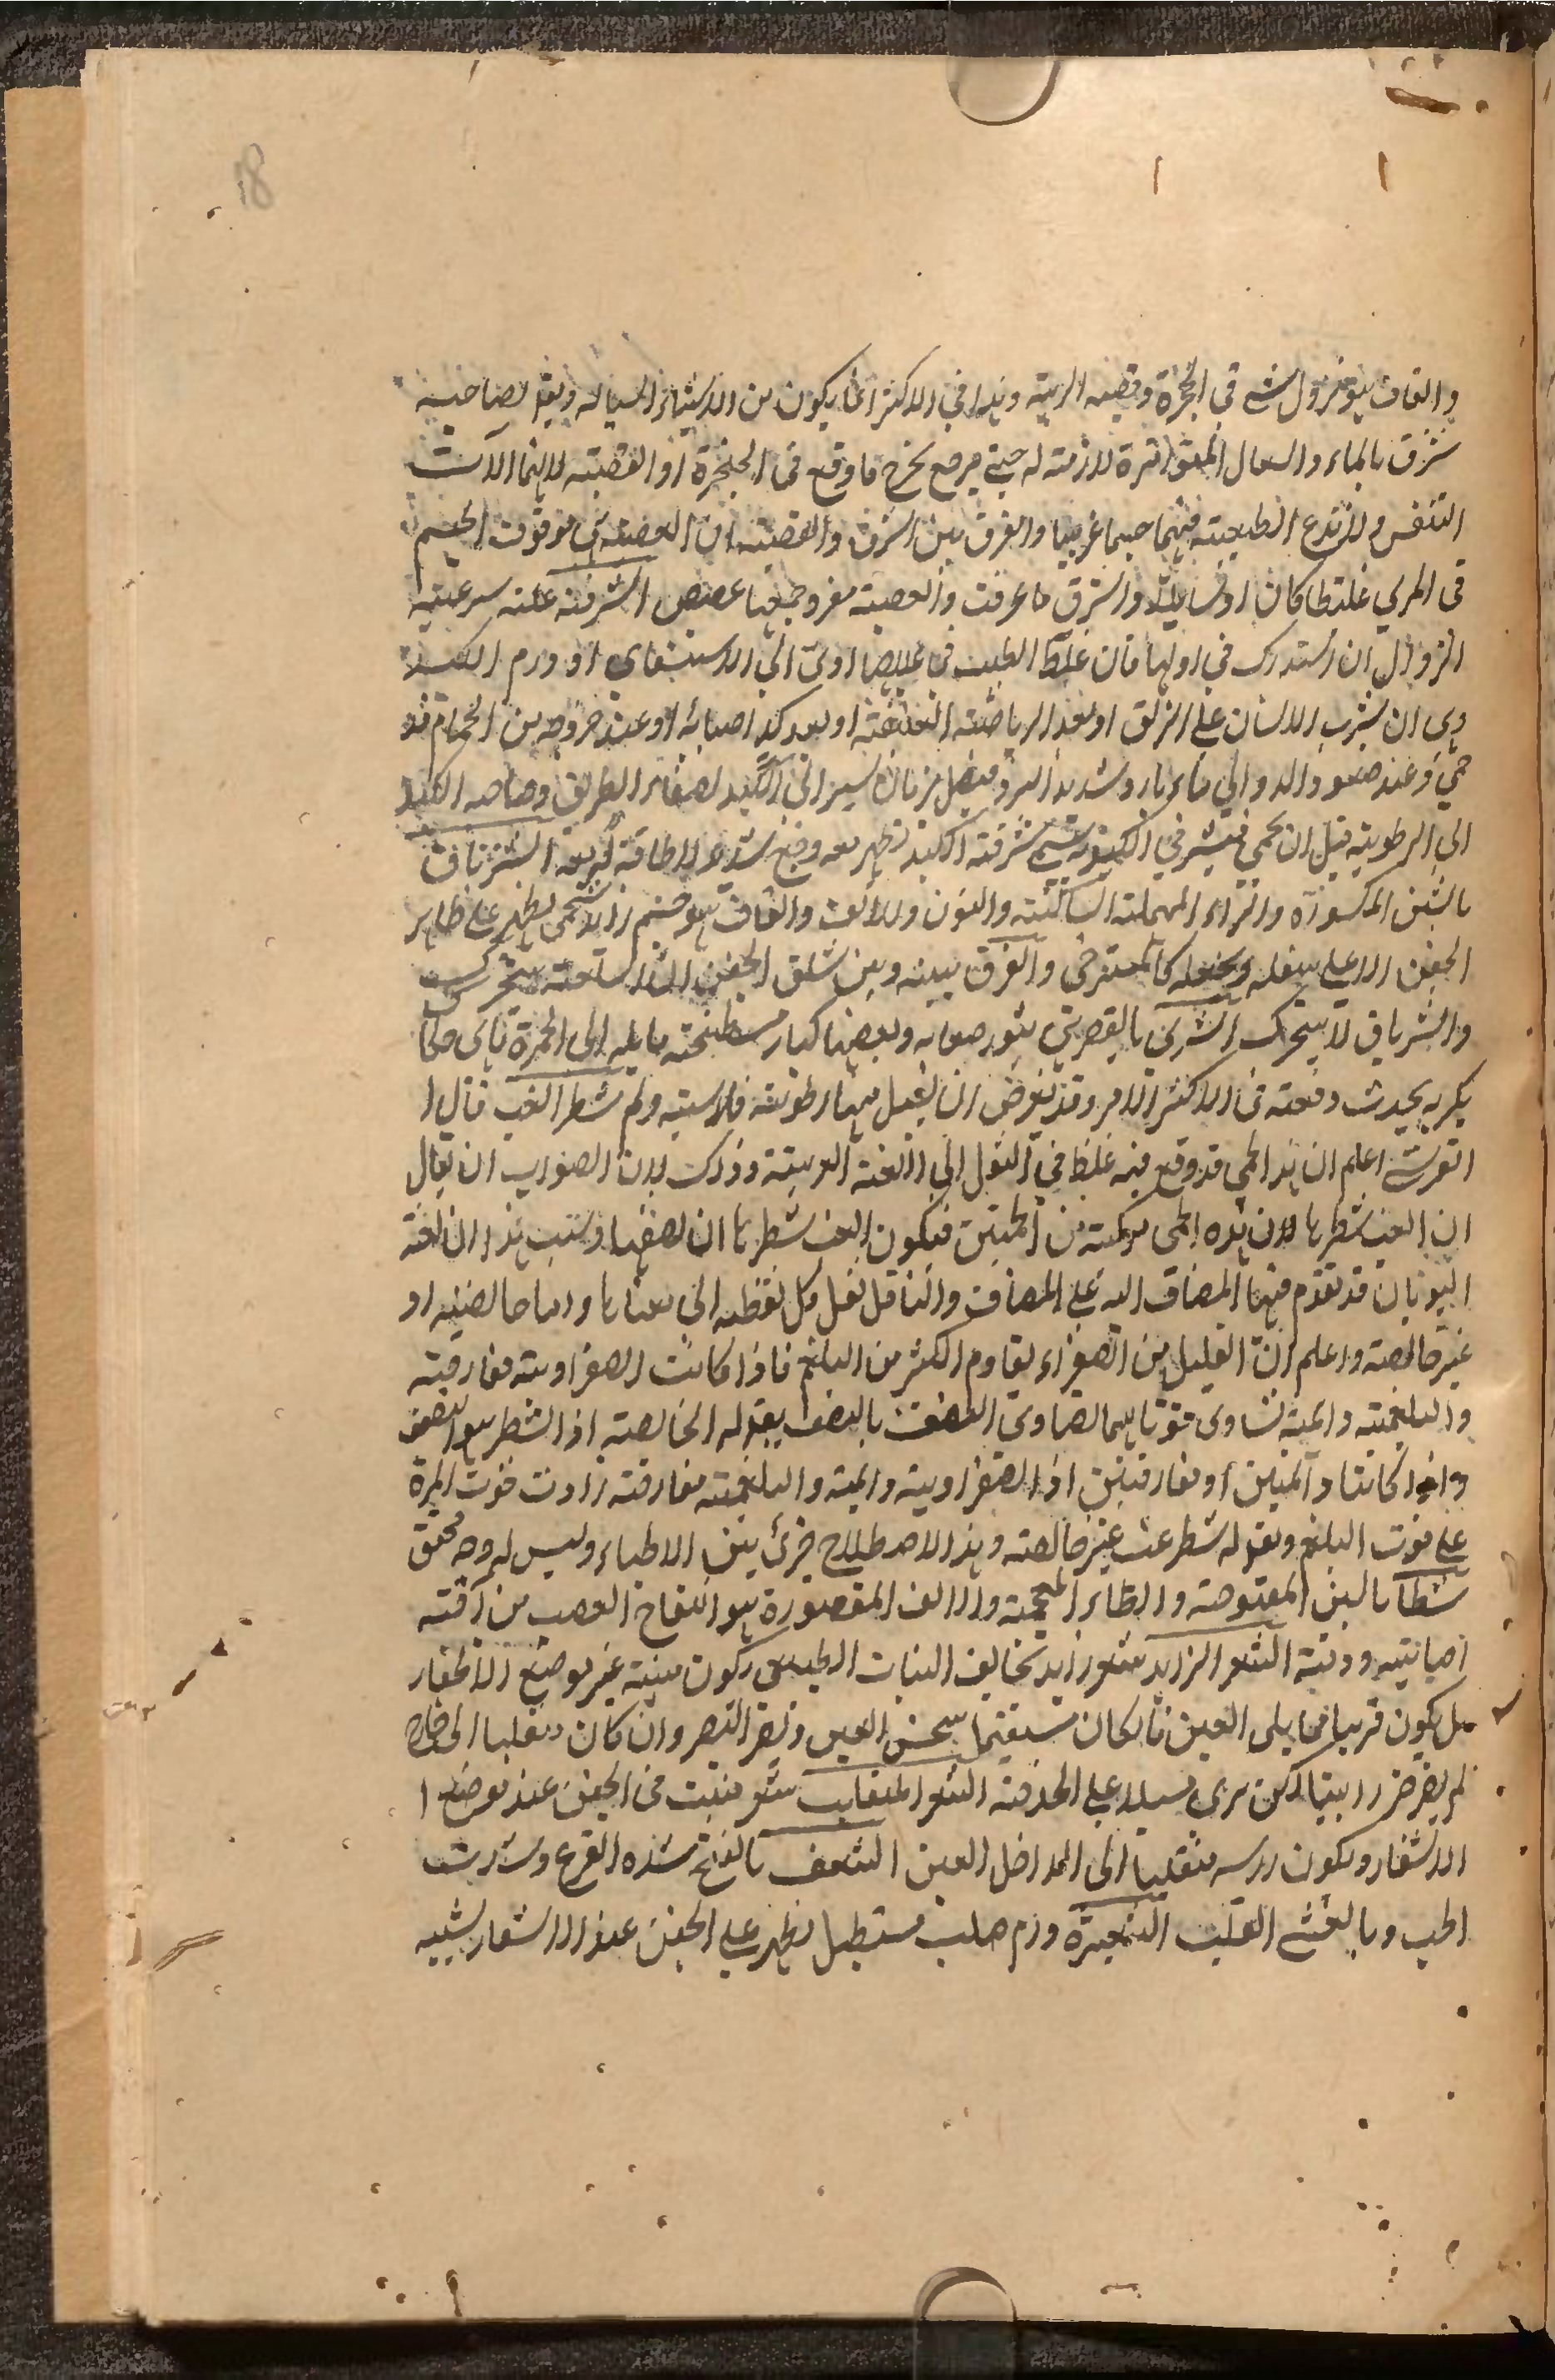 18
والقاف هو نزول شئ في الحنجرة وقصبة الرية وهذا في الاكثر انما يكون من الاشياء السيالة ويقع لصاحبه
شرق بالماء والسعال المتواترة لازمة له حتى يرجع يخرج ما وقع في الحنجرة او القصبة لانهما آلات
التنفس ولا تدع الطبيعة فيهما جسما غريبا والفرق بين الشرق والغصة ان الغصة هى وقوف الجسم
في المري غليظا كان او سايلا والشرق ما عرفت والغصة مفرد جمعها غصص الشرقة علة سريعة
الزوال ان استدرك في اولها فان غلط الطبيب في علاجها ادى الى الاستسقاء او ورم الكبد
وهى ان يشرب الانسان على الريق او بعد الرياضة العنيفة او بعد كد اصابه او عند خروجه من الحمام قد
حمي وعند صعود الدوالي ماء بارد شديد البرد فيصل زمان يسير الى الكبد لصفاء الطريق وحاجة الكبد
الى الرطوبة قبل ان يحمي فينشر في الكبد ويسمى شرقة الكبد تظهر معه وجع شديد لا طاقة به معه الشرناق
بالشين المكسورة والراء المهملة الساكنة والنون والالف والقاف هو جسم زايد شحمى يظهر على ظاهر
الجفن الاعلى يثقله ويجعله كالمسترخى والفرق بينه وبين شلق الجفن ان السلعة يتحرك
والشرناق لا يتحرك الشرى بالقصر هى بثور صغار وبعضها كبار مسطحة مايلة الى الحمرة تاكل حكا
يكربه يحدث دفعة في الاكثر الامر وقد يعرض ان يسيل منها رطوبة شطر الغب قال
القرشي اعلم ان هذا الحمى قد وقع فيه غلط في النقل الى اللغة العربية وذلك لان الصواب ان يقال
ان الغب شطرها لان هذه الحمى مركبة من الحميتين فيكون الغب شطرها ان نصفها وسبب هذا ان لغة
اليونان قد تقدم فيها المضاف اليه على المضاف والناقل نقل كل لفظه الى معناها واما خالصة او
غير خالصة واعلم ان القليل من الصفراء يقاوم الكثير من البلغم فاذا كانت الصفراوية مفارقة
والبلغمية دايمة تساوى قوتاهما لتساوى النصف بالنصف يقوله الخالصة اذ الشطر هو النصف
واذا كانتا دائمتين او مفارقتين اذ الصفراوية دايمة والبلغمية مفارقة زادت قوت المرة
على قوت البلغم ويقوله شطر غب غير خالصة وهذا الاصطلاح جرى بين الاطباء وليس له وجه محقق
شظا بالشين المفتوحة والظاء المعجمة والالف المقصورة هو انتفاخ العصب من آفة
اصابته ودقة الشعر الزايد شعر زايد يخالف النبات الطبيعى ويكون منبته غير موضع الاشفار
بل يكون قريبا مما يلى العين فان كان مستقيما سخن العين وضر البصر وان كان منقلبا الى خارج
لم يضر ضررا بينا لكن يرى مسبلا على الحدقة الشعر المنقلب شعر ينبت في الجفن عند موضع
الاشفار ويكون راسه منقلبا الى داخل العين الشعف بالفتح شدة الفزع وشدت
الحب وبالعشق القلب الشعيرة ورم صلب مستطيل يظهر على الجفن عند الاشفار يشبه